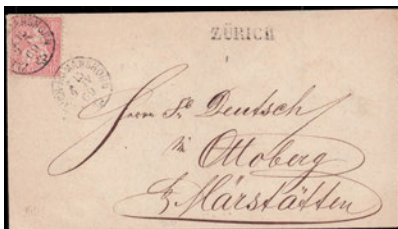 ZÜRICH
Herrn Fr. Deutsch
in Ottoberg
b/ Märstätten